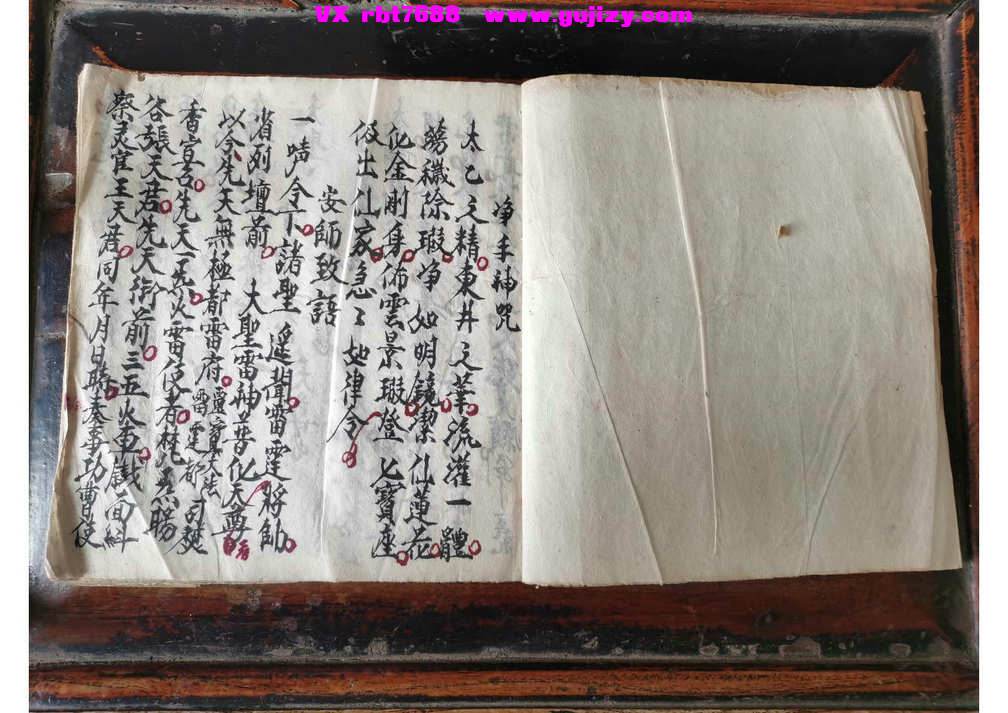 VX rbt7688 www.gujizy.com
净手神咒
太乙之精東井之華流灌一體
蕩穢除瑕净如明鏡潔仙蓮花
化金剛身佈雲景瑕登七寶座
伋出仙家急〻如律令
安師致語
一啨令下諸聖遥聞雷霆將帥
省列壇前大聖雷神普化天尊
以今先天無極都雷府靈寳大法雷霆都司
香宣召先天一炁火雷使者
谷張天君先天衔前三五火車鐵面糾
察灵官王天君同年月日時奏事功曹使